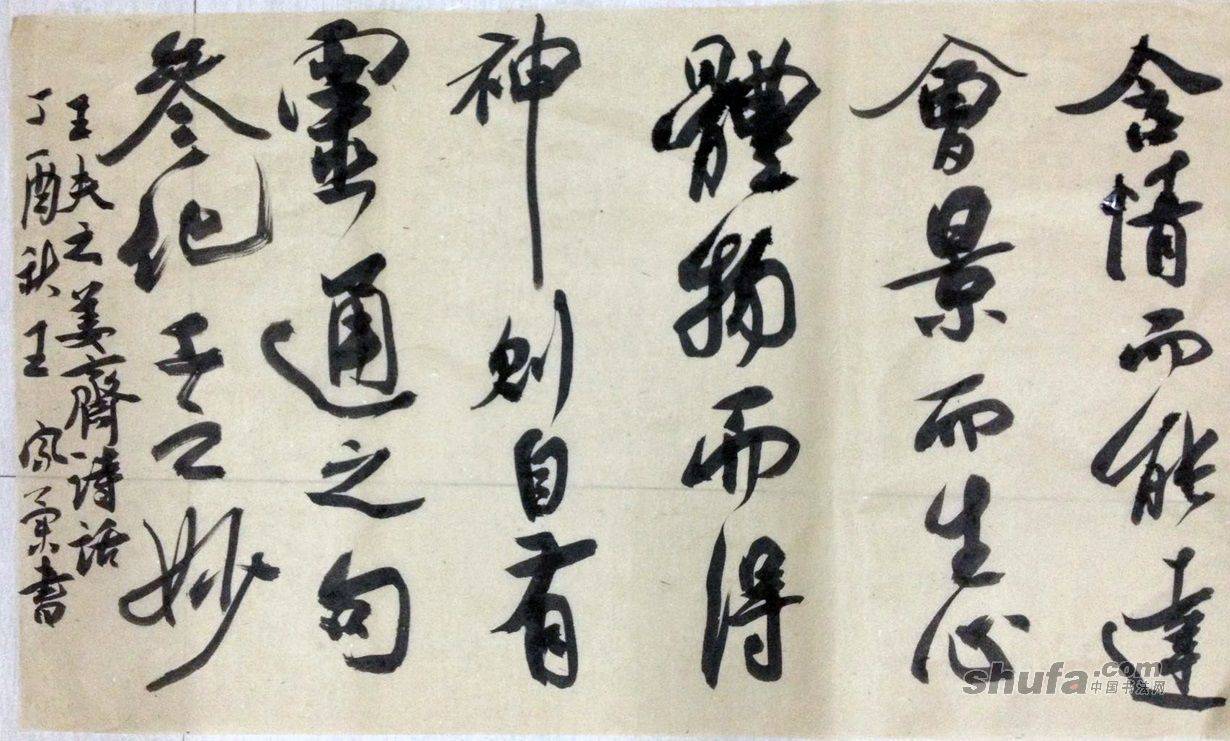 含情而能達
會景而生心
體物而得
神則自有
靈通之句
參化工之妙
王夫之姜齋詩話
丁酉秋王家業書
shufa.com
中国书法网